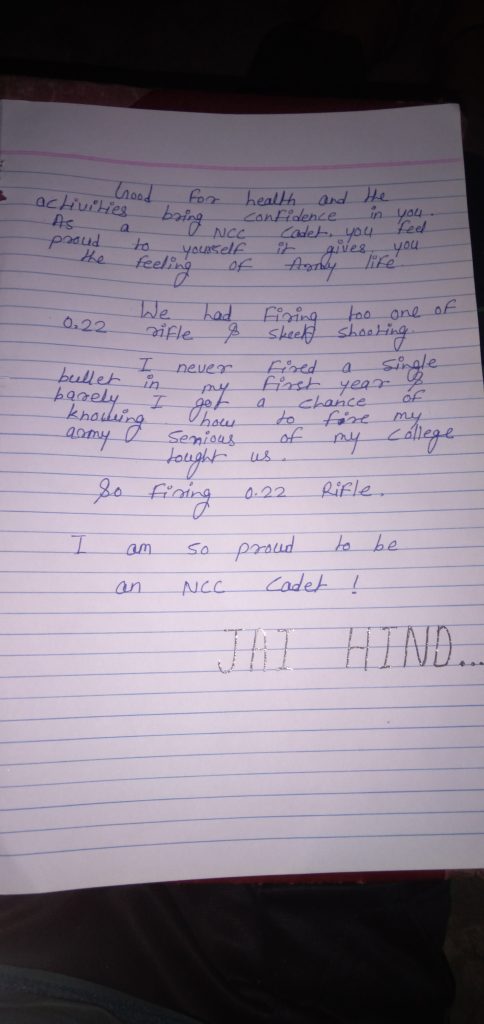 Good For health and the
activities bring confidence in you.
As a NCC Cadet, you feel
proud to yourself it gives you
the feeling of Army life
We had Firing too one of
0.22 rifle & skeet shooting.
I never Fired a single
bullet in my First year &
barely I got a chance of
knowing how to fire my
army Senious of my college
tought us.
So Firing 0.22 Rifle.
I am so proud to be
an NCC Cadet !
JAI HIND...